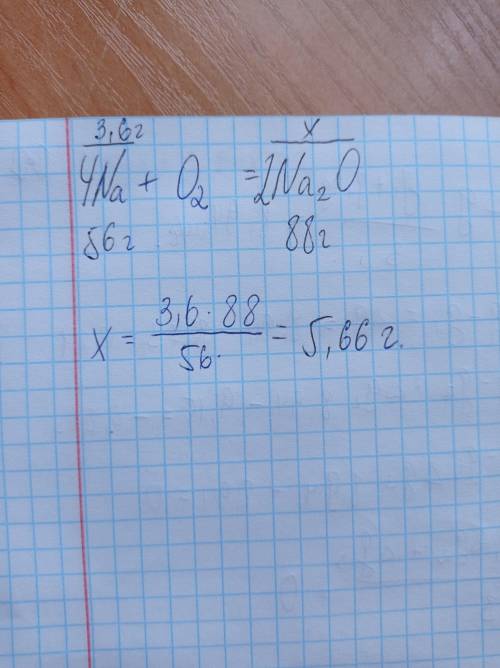 3,6г x
4Na + O₂ = 2Na₂O
56г 88г
x = 3,6 · 88 / 56 = 5,66 г.